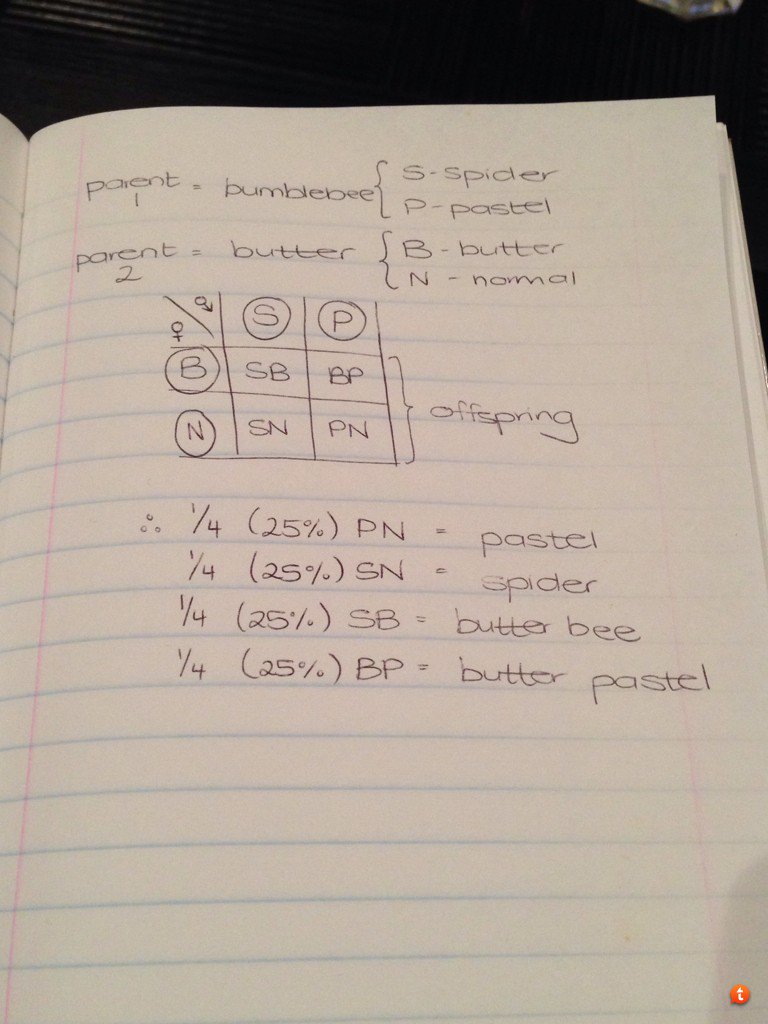 parent 1 = bumblebee { S - spider
P - pastel
parent 2 = butter { B - butter
N - normal
♀ / ♂ S P
B SB BP
N SN PN } offspring
∴ 1/4 (25%) PN = pastel
1/4 (25%) SN = spider
1/4 (25%) SB = butter bee
1/4 (25%) BP = butter pastel
t